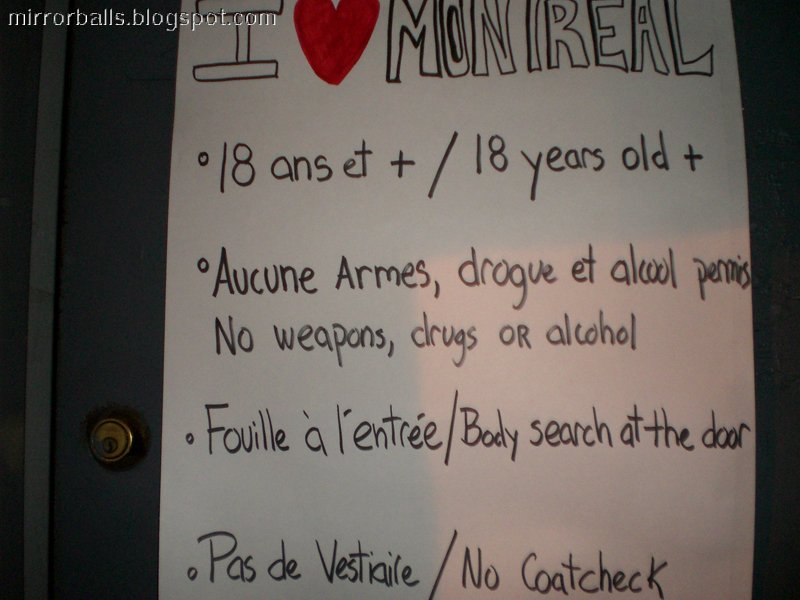 mirrorballs.blogspot.com
I ♥ MONTREAL
°18 ans et + / 18 years old +
°Aucune Armes, drogue et alcool permis
No weapons, drugs or alcohol
°Fouille à l'entrée/Body search at the door
°Pas de Vestiaire / No Coatcheck